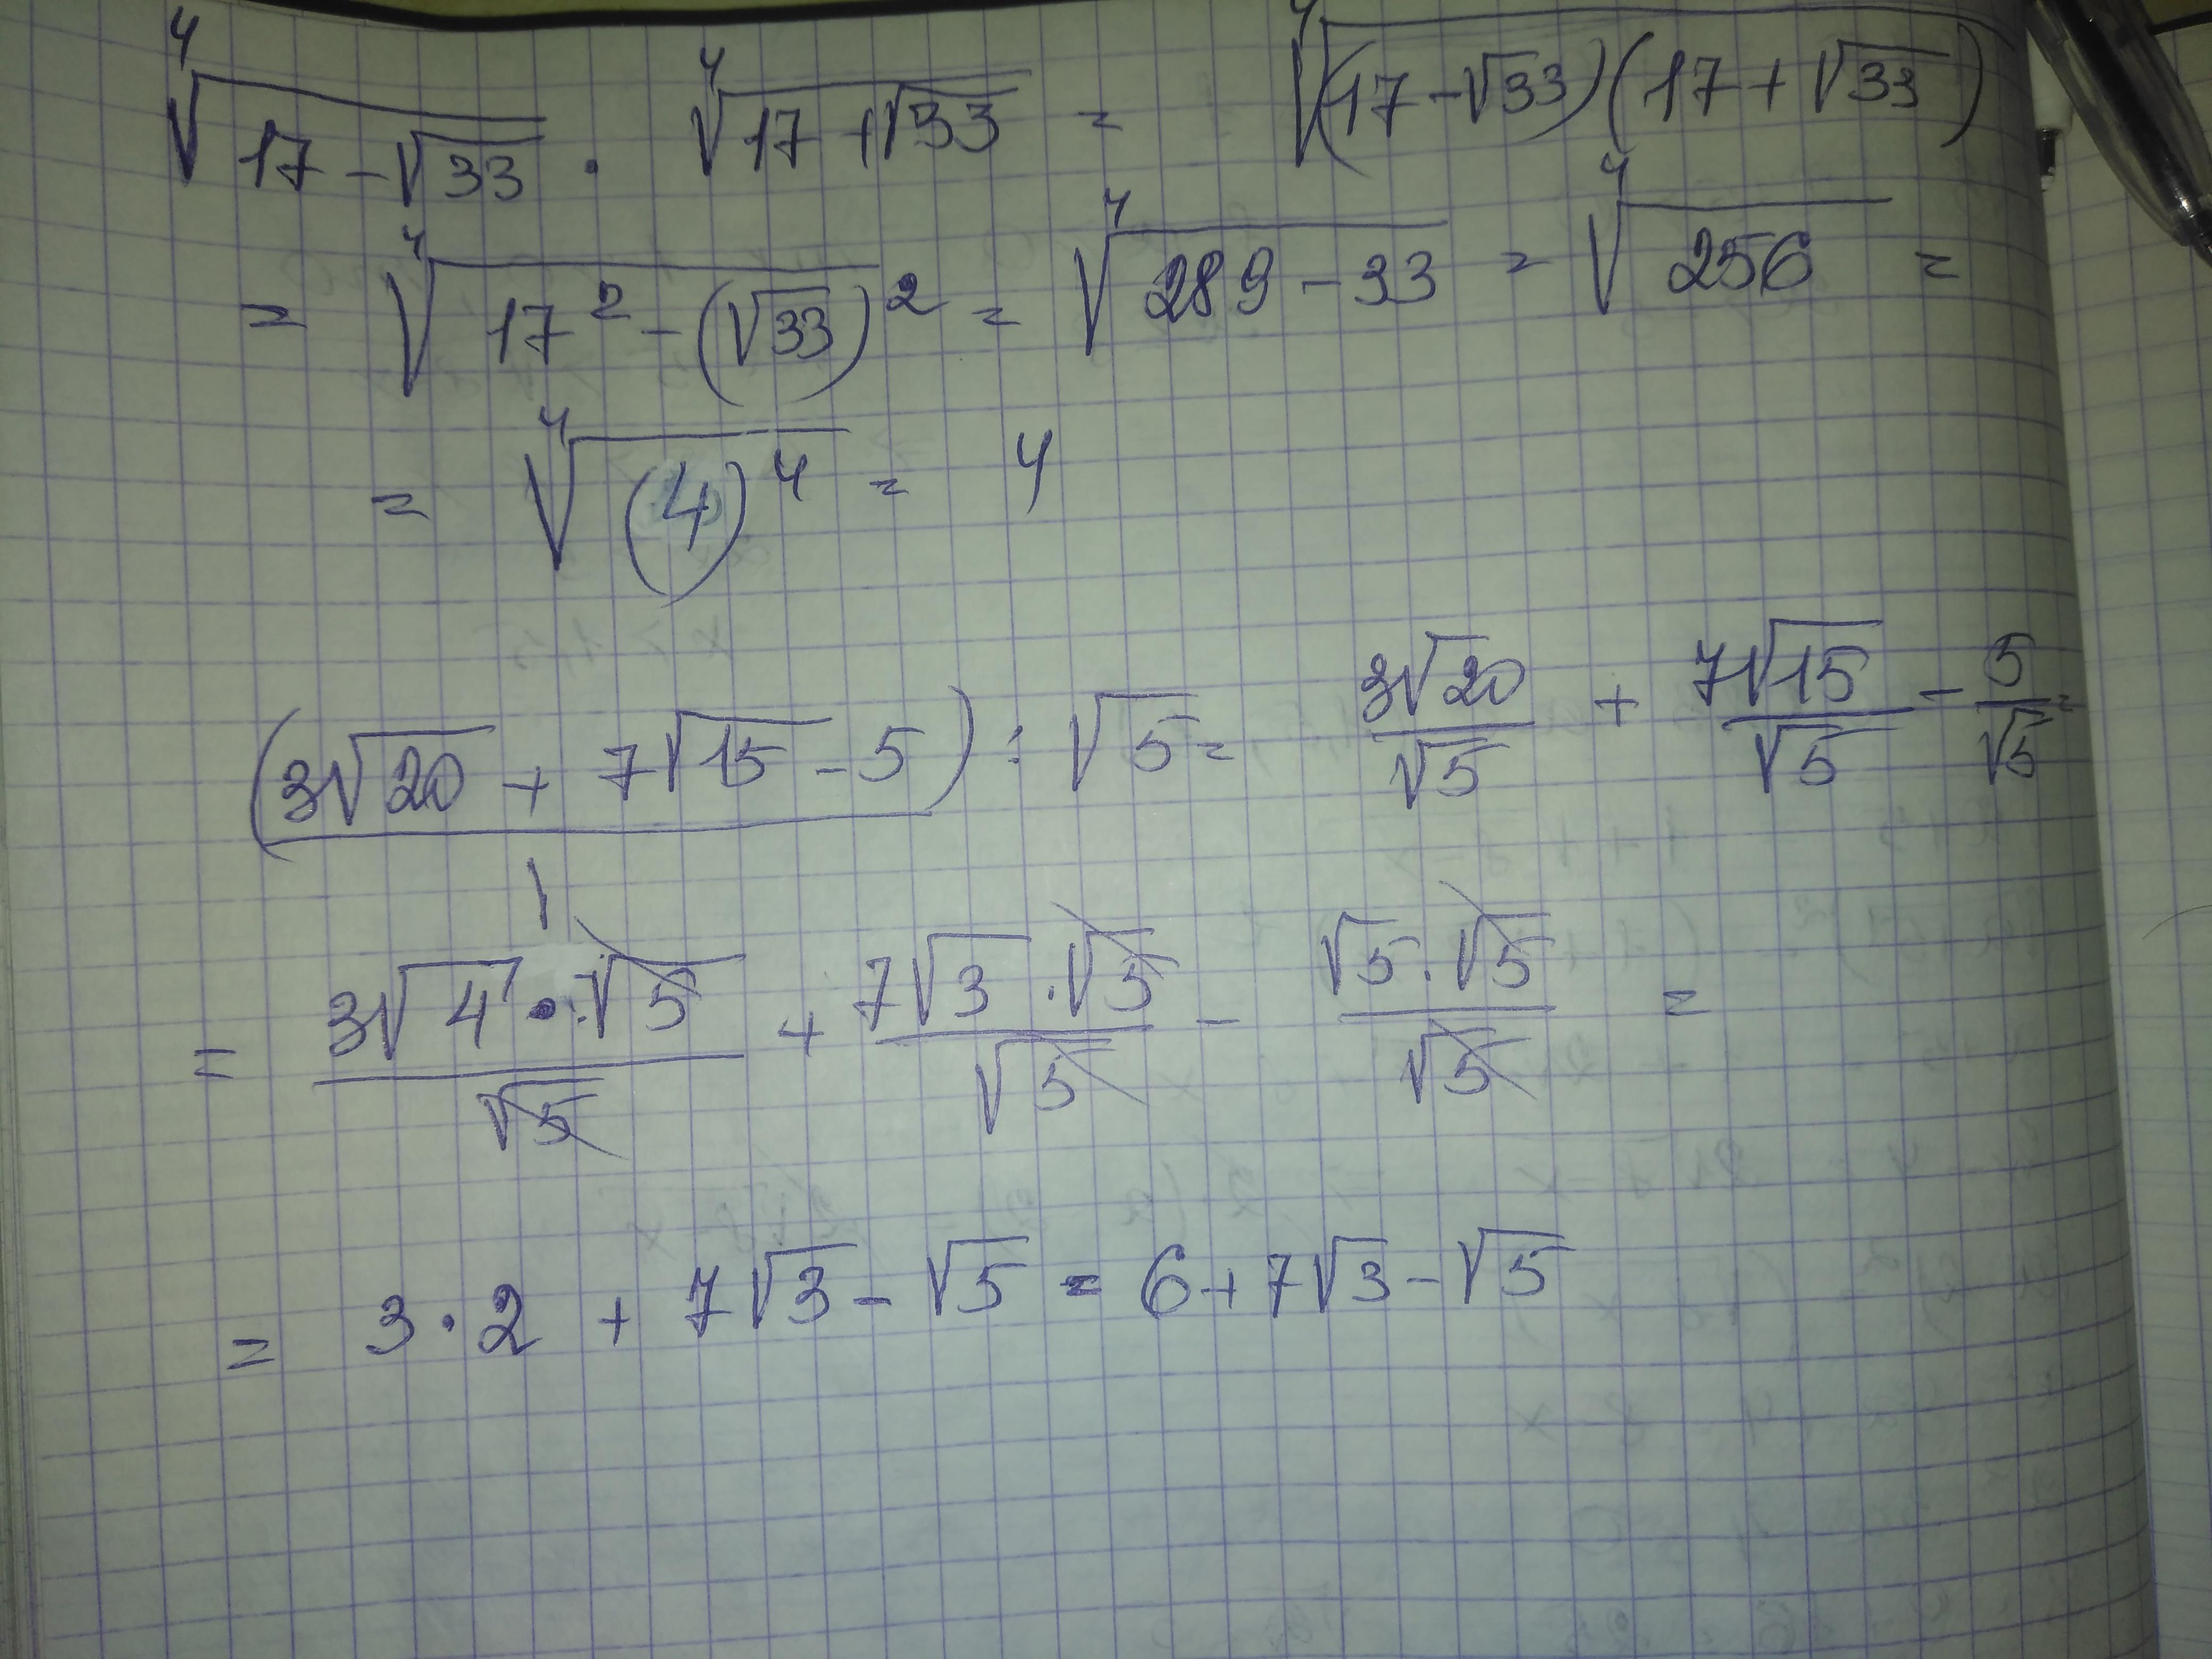 ⁴√(17-√33) · ⁴√(17+√33) = ⁴√((17-√33)(17+√33))
= ⁴√(17² - (√33)²) = ⁴√(289-33) = ⁴√256 =
= ⁴√((4)⁴) = 4
(3√20 + 7√15 - 5) : √5 = 3√20/√5 + 7√15/√5 - 5/√5 =
1
= 3√4 · √5/√5 + 7√3 · √5/√5 - √5 · √5/√5 =
= 3 · 2 + 7√3 - √5 = 6 + 7√3 - √5